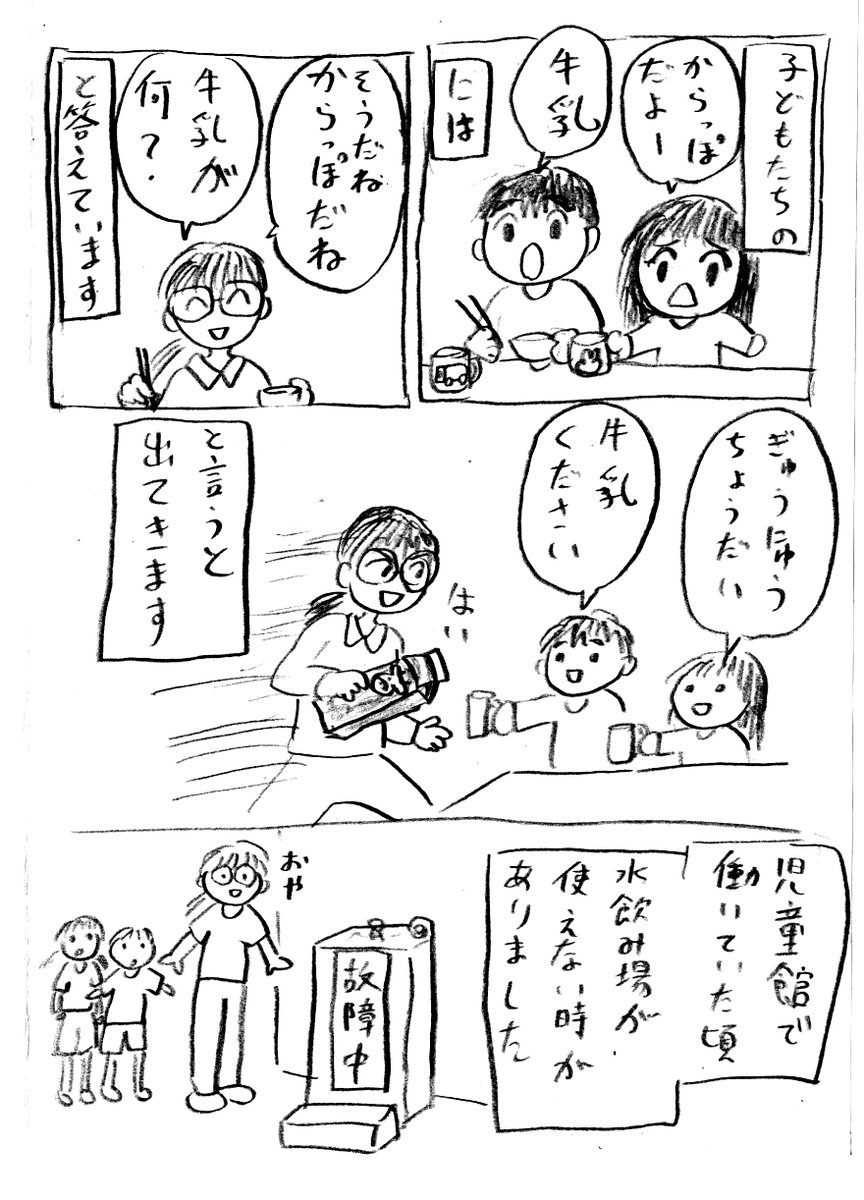 子どもたちの
からっぽ
だよー
牛乳
には
そうだね
からっぽだね
牛乳が
何?
と答えています
ぎゅうにゅう
ちょうだい
牛乳
ください
はい
と言うと
出てきます
児童館で
働いていた頃
水飲み場が
使えない時が
ありました
故障中
おや